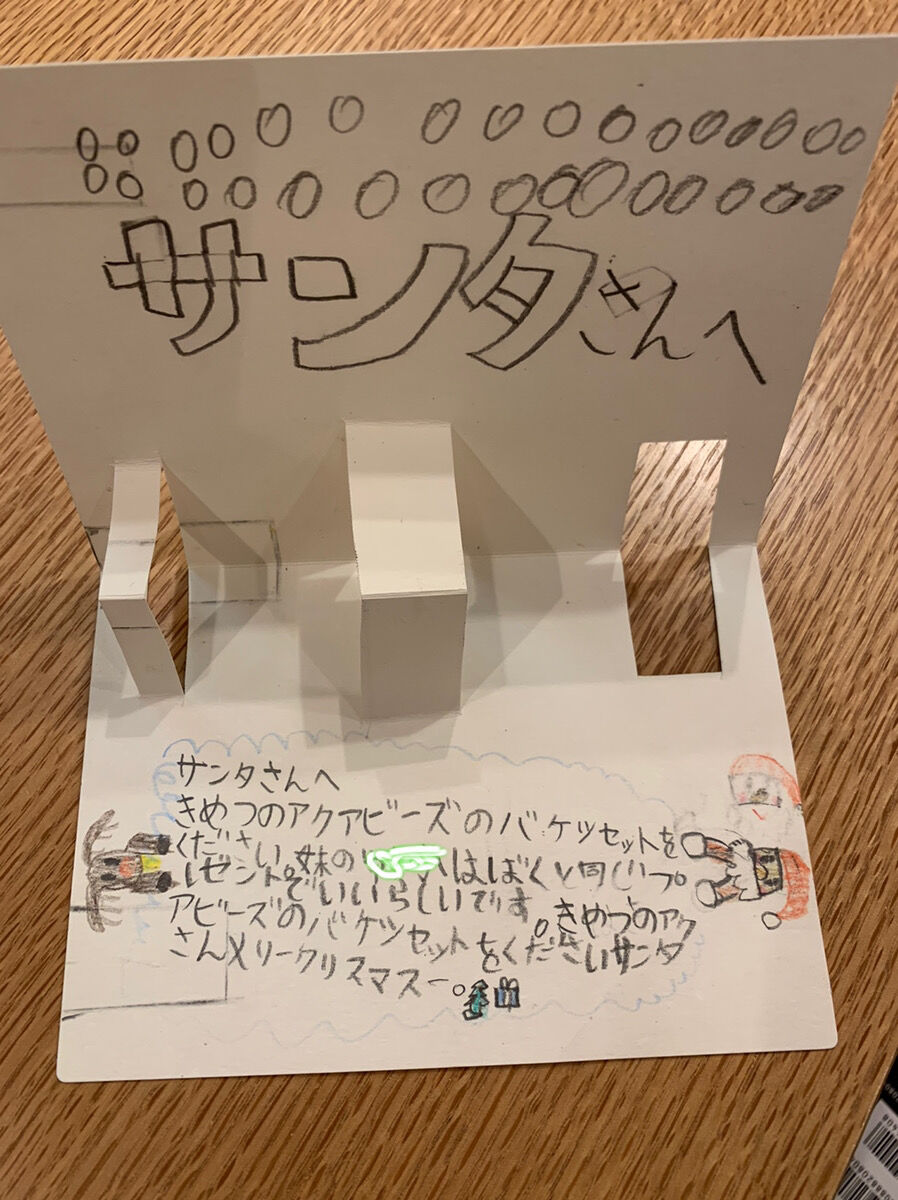 サンタさんへ
サンタさんへ
きめつのアクアビーズのバケツセットを
ください 妹の はぼくと同じプ
レゼントでいいらしいです。きめつのアク
アビーズのバケツセットをくださいサンタ
さんメリークリスマスー。